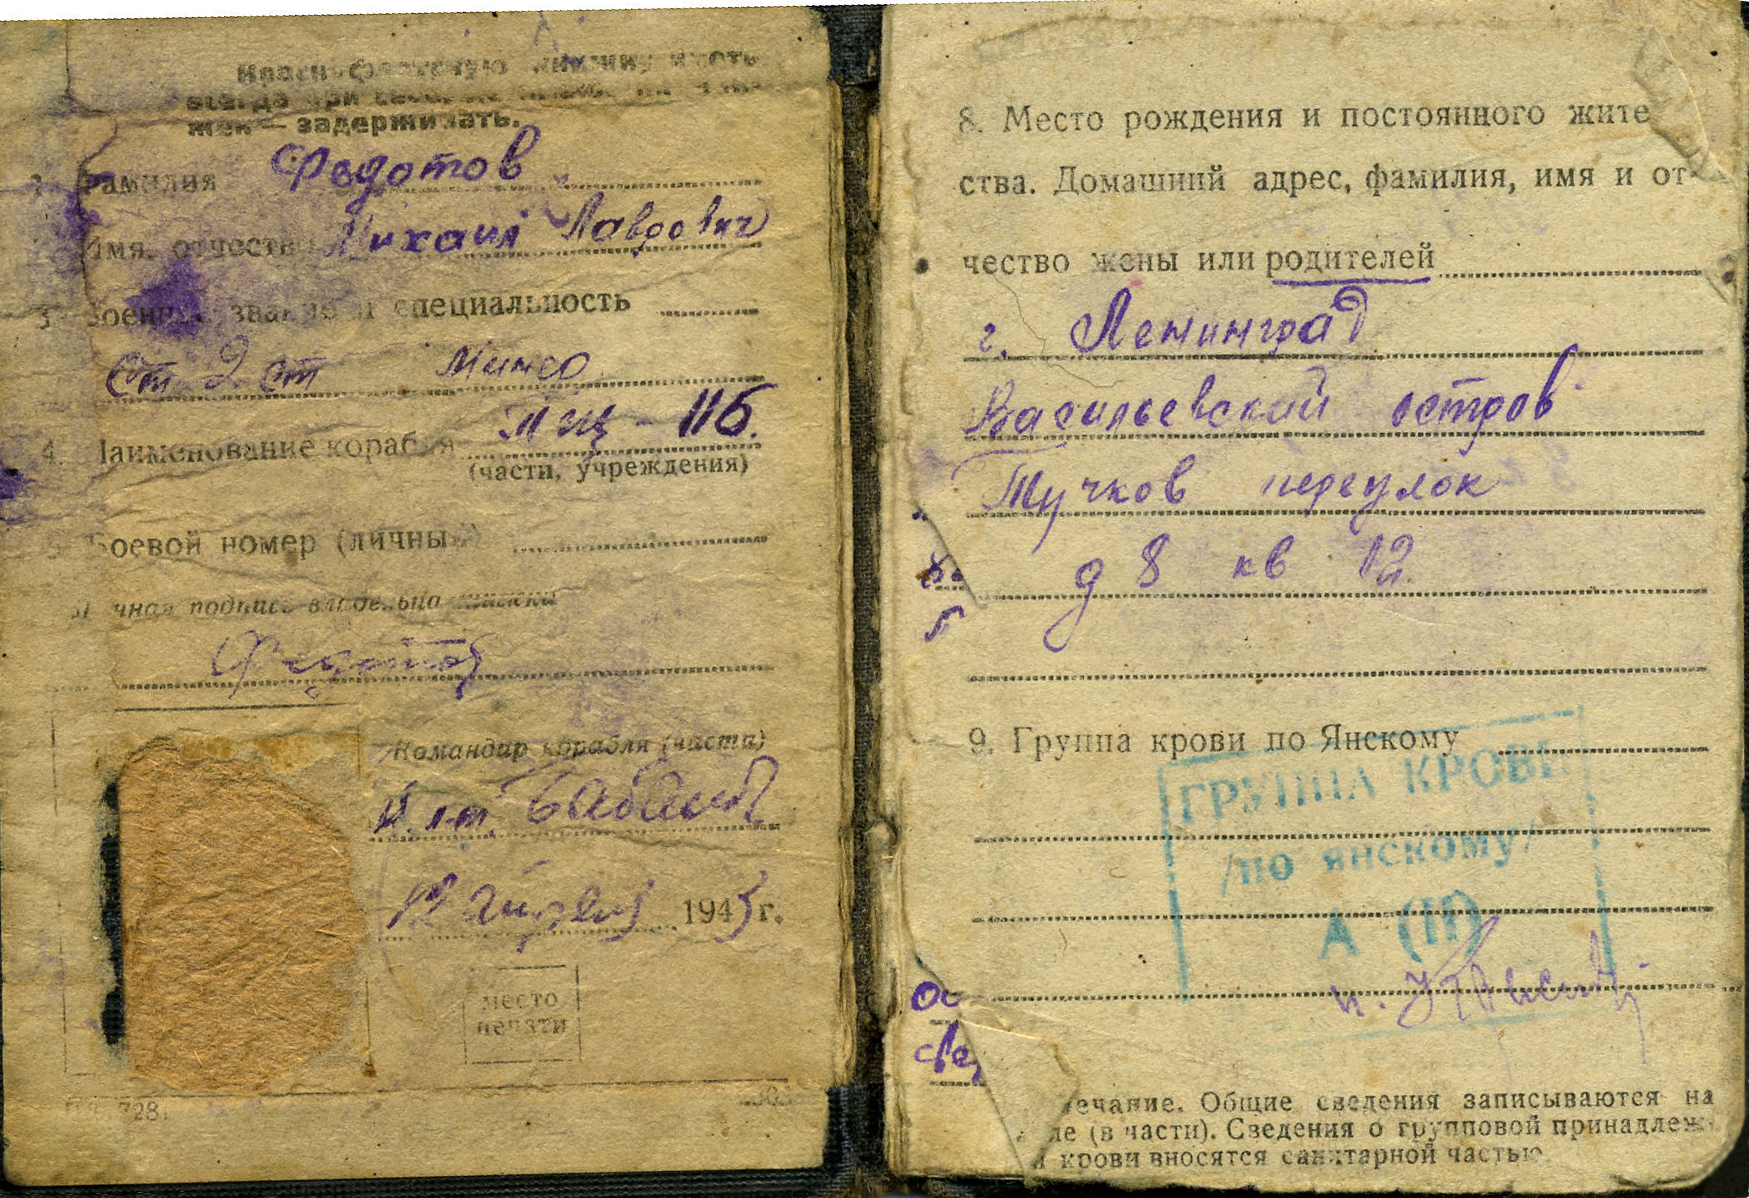 Краснофлотскую книжку иметь
всегда при себе. Не имею
жек — задерживать.
1. Фамилия Федотов
Имя, отчество Михаил Лаврович
3. Военное звание и специальность
Ст. 2 ст минер
4. Наименование корабля МТЩ - 116.
(части, учреждения)
5. Боевой номер (личный)
Личная подпись владельца книжки
Федотов
Командир корабля (части)
12 апреля 1945 г.
место
печати
728.
8. Место рождения и постоянного жите
ства. Домашний адрес, фамилия, имя и от-
чество жены или родителей
г. Ленинград
Васильевский остров
Тучков переулок
д 8 кв 12.
9. Группа крови по Янскому
ГРУППА КРОВИ
/по янскому/
А (II)
Ос
све
ечание. Общие сведения записываются на
ле (в части). Сведения о групповой принадлеж-
и крови вносятся санитарной частью.